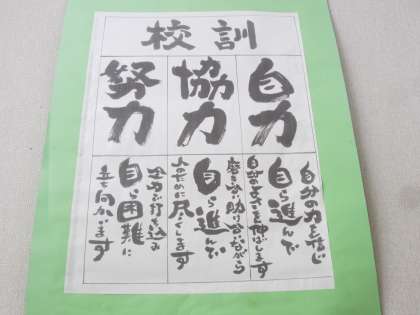 校訓
自力
協力
努力
自分の力を信じ
自ら進んで
自分のよさを伸ばします
磨き合い助け合いながら
自ら進んで
人のために尽くします
全力で打ち込み
自ら困難に
立ち向かいます